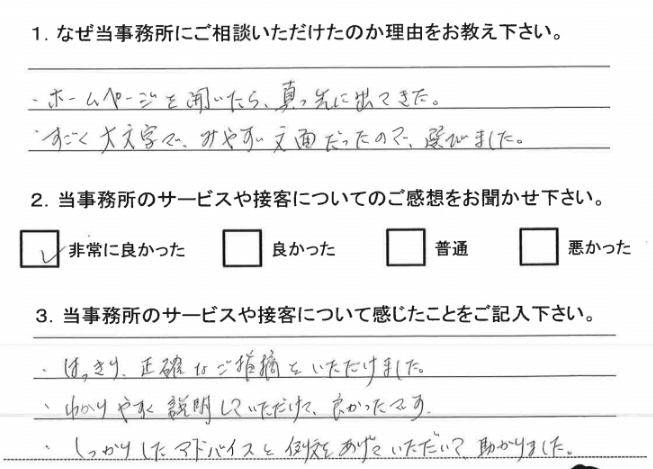 1. なぜ当事務所にご相談いただけたのか理由をお教え下さい。
・ホームページを開いたら、真っ先に出てきた。
・すごく大文字で、みやすい文面だったので、選びました。
2. 当事務所のサービスや接客についてのご感想をお聞かせ下さい。
非常に良かった 良かった 普通 悪かった
3. 当事務所のサービスや接客について感じたことをご記入下さい。
・はっきり、正確なご指摘をいただけました。
・わかりやすく説明していただけて、良かったです。
・しっかりしたアドバイスと例えをあげていただいて、助かりました。